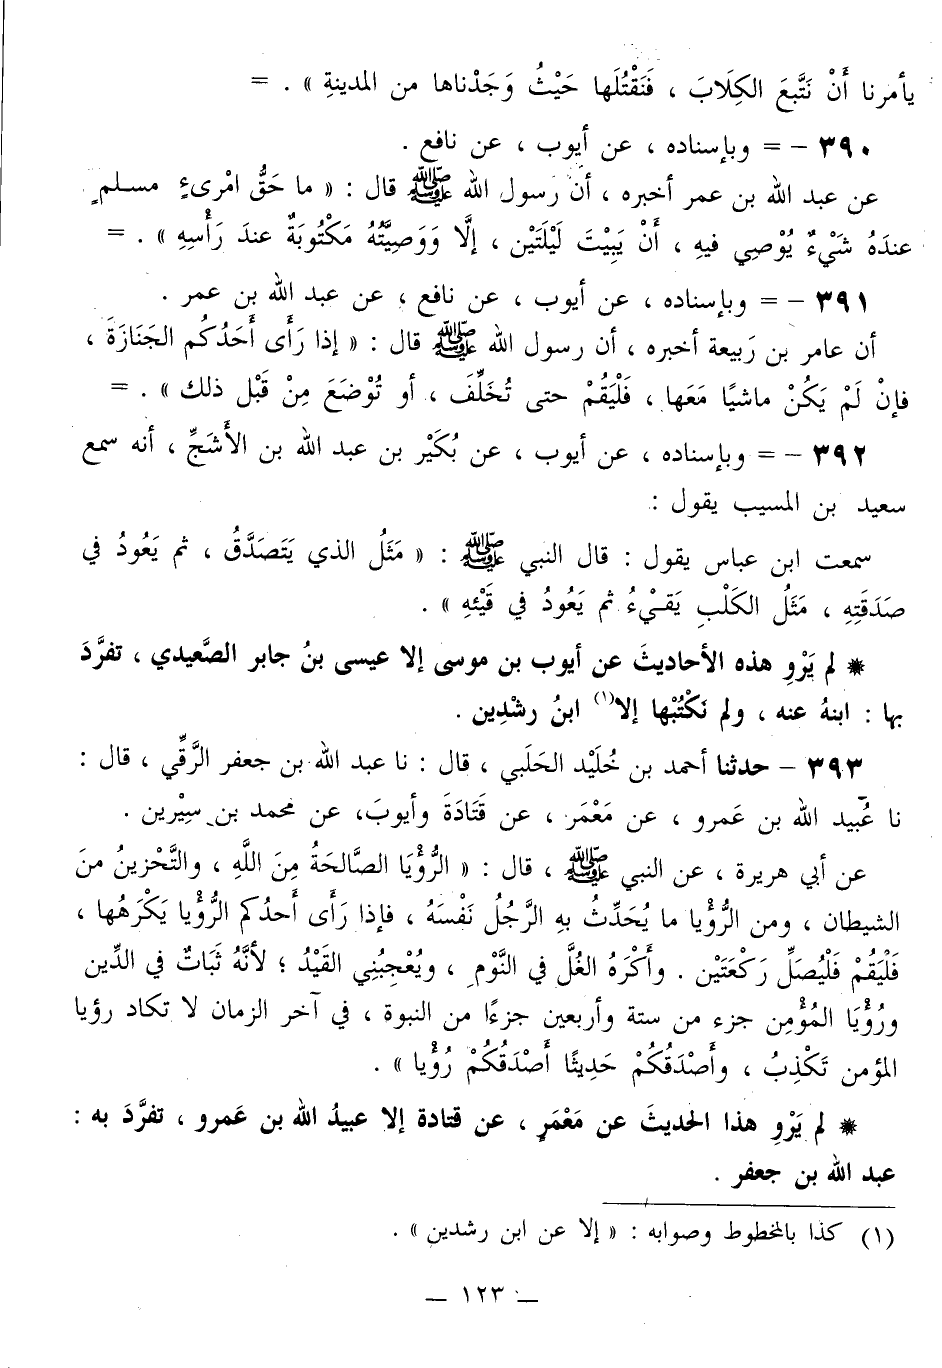 يأمرنا أَنْ نَتَّبِعَ الكِلَابَ ، فَنَقْتُلَها حَيْثُ وَجَدْناها من المدينةِ » . =
٣٩٠ - = وبإسناده ، عن أيوب ، عن نافع .
عن عبد الله بن عمر أخبره ، أن رسول الله ﷺ قال : « ما حَقُّ امْرىءٍ مسلمٍ
عندَهُ شَيْءٌ يُوْصِي فيهِ ، أَنْ يَبِيْتَ لَيْلَتَيْن ، إلَّا وَوَصِيَّتُهُ مَكْتُوبَةٌ عندَ رَأْسِهِ » . =
٣٩١ - = وبإسناده ، عن أيوب ، عن نافع ، عن عبد الله بن عمر .
أن عامر بن رَبيعة أخبره ، أن رسول الله ﷺ قال : « إذا رَأَى أَحَدُكُم الجَنَازَةَ ،
فإنْ لَمْ يَكُنْ ماشيًا مَعَها ، فَلْيَقُمْ حتى تُخَلِّفَ ، أو تُوْضَعَ مِنْ قَبْل ذلك » . =
٣٩٢ - = وبإسناده ، عن أيوب ، عن بُكَيْر بن عبد الله بن الأَشَجِّ ، أنه سمع
سعيد بن المسيب يقول :
سمعت ابن عباس يقول : قال النبي ﷺ : « مَثَلُ الذي يَتَصَدَّقُ ، ثم يَعُودُ في
صَدَقَتِهِ ، مَثَلُ الكَلْبِ يَقيْءُ ثم يَعُودُ في قَيْئِهِ » .
* لم يَرْوِ هذه الأحاديثَ عن أيوب بن موسى إلا عيسى بنُ جابر الصَّعيدي ، تفرَّدَ
بها : ابنهُ عنه ، ولم نَكْتُبْها إلا(١) ابنُ رشْدِين .
٣٩٣ - حدثنا أحمد بن خُلَيْد الحَلَبي ، قال : نا عبد الله بن جعفر الرَّقِّي ، قال :
نا عُبيد الله بن عَمرو ، عن مَعْمَر ، عن قَتَادَةَ وأيوبَ، عن محمد بن سِيْرين .
عن أبي هريرة ، عن النبي ﷺ ، قال : « الرُّؤْيَا الصَّالحَةُ مِنَ اللَّهِ ، والتَّحْزينُ منَ
الشيطان ، ومن الرُّؤْيا ما يُحَدِّثُ بهِ الرَّجُلُ نَفْسَهُ ، فإذا رَأَى أَحدُكم الرُّؤْيا يَكْرَهُها ،
فَلْيَقُمْ فَلْيُصَلِّ رَكْعَتَيْن . وأَكْرَهُ الغُلَّ في النَّوْمِ ، ويُعْجِبُنِي القَيْدُ ؛ لأنَّهُ ثَبَاتٌ في الدِّين
ورُؤْيَا المُؤْمِن جزء من ستة وأربعين جزءًا من النبوة ، في آخر الزمان لا تكاد رؤيا
المؤمن تَكْذِبُ ، وأَصْدَقُكُمْ حَدِيثًا أَصْدَقُكُمْ رُؤْيا » .
* لم يَرْوِ هذا الحديثَ عن مَعْمَرٍ ، عن قتادة إلا عبيدُ الله بن عَمرو ، تفرَّدَ به :
عبد الله بن جعفر .
(١) كذا بالمخطوط وصوابه : « إلا عن ابن رشدين » .
— ١٢٣ —